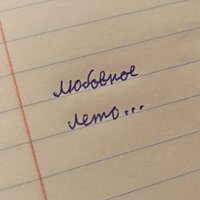 любовное
лето...